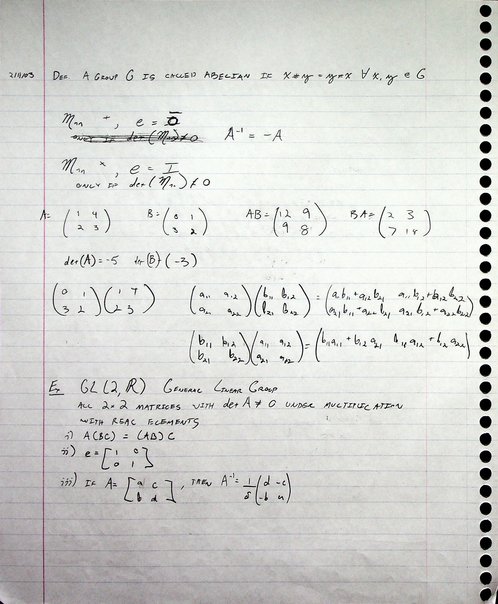 2/11/03 DEF. A GROUP G IS CALLED ABELIAN IF x * y = y * x ∀ x, y ∈ G
Mnn +, e = 0
ONLY IF det(Mnn) ≠ 0 A⁻¹ = -A
Mnn ×, e = I
ONLY IF det(Mnn) ≠ 0
A= (1 4; 2 3) B = (0 1; 3 2) AB = (12 9; 9 8) BA = (2 3; 7 18)
det(A) = -5 det(B) (-3)
(0 1; 3 2)(1 4; 2 3) (a11 a12; a21 a22)(b11 b12; b21 b22) = (a11b11+a12b21 a11b12+a12b22; a21b11+a22b21 a21b12+a22b22)
(b11 b12; b21 b22)(a11 a12; a21 a22) = (b11a11+b12a21 b11a12+b12a22)
Ex GL(2, ℝ) GENERAL LINEAR GROUP
ALL 2×2 MATRICES WITH det A ≠ 0 UNDER MULTIPLICATION
WITH REAL ELEMENTS
i) A(BC) = (AB)C
ii) e = [1 0; 0 1]
iii) IF A = [a c; b d], THEN A⁻¹ = 1/δ (d -c; -b a)